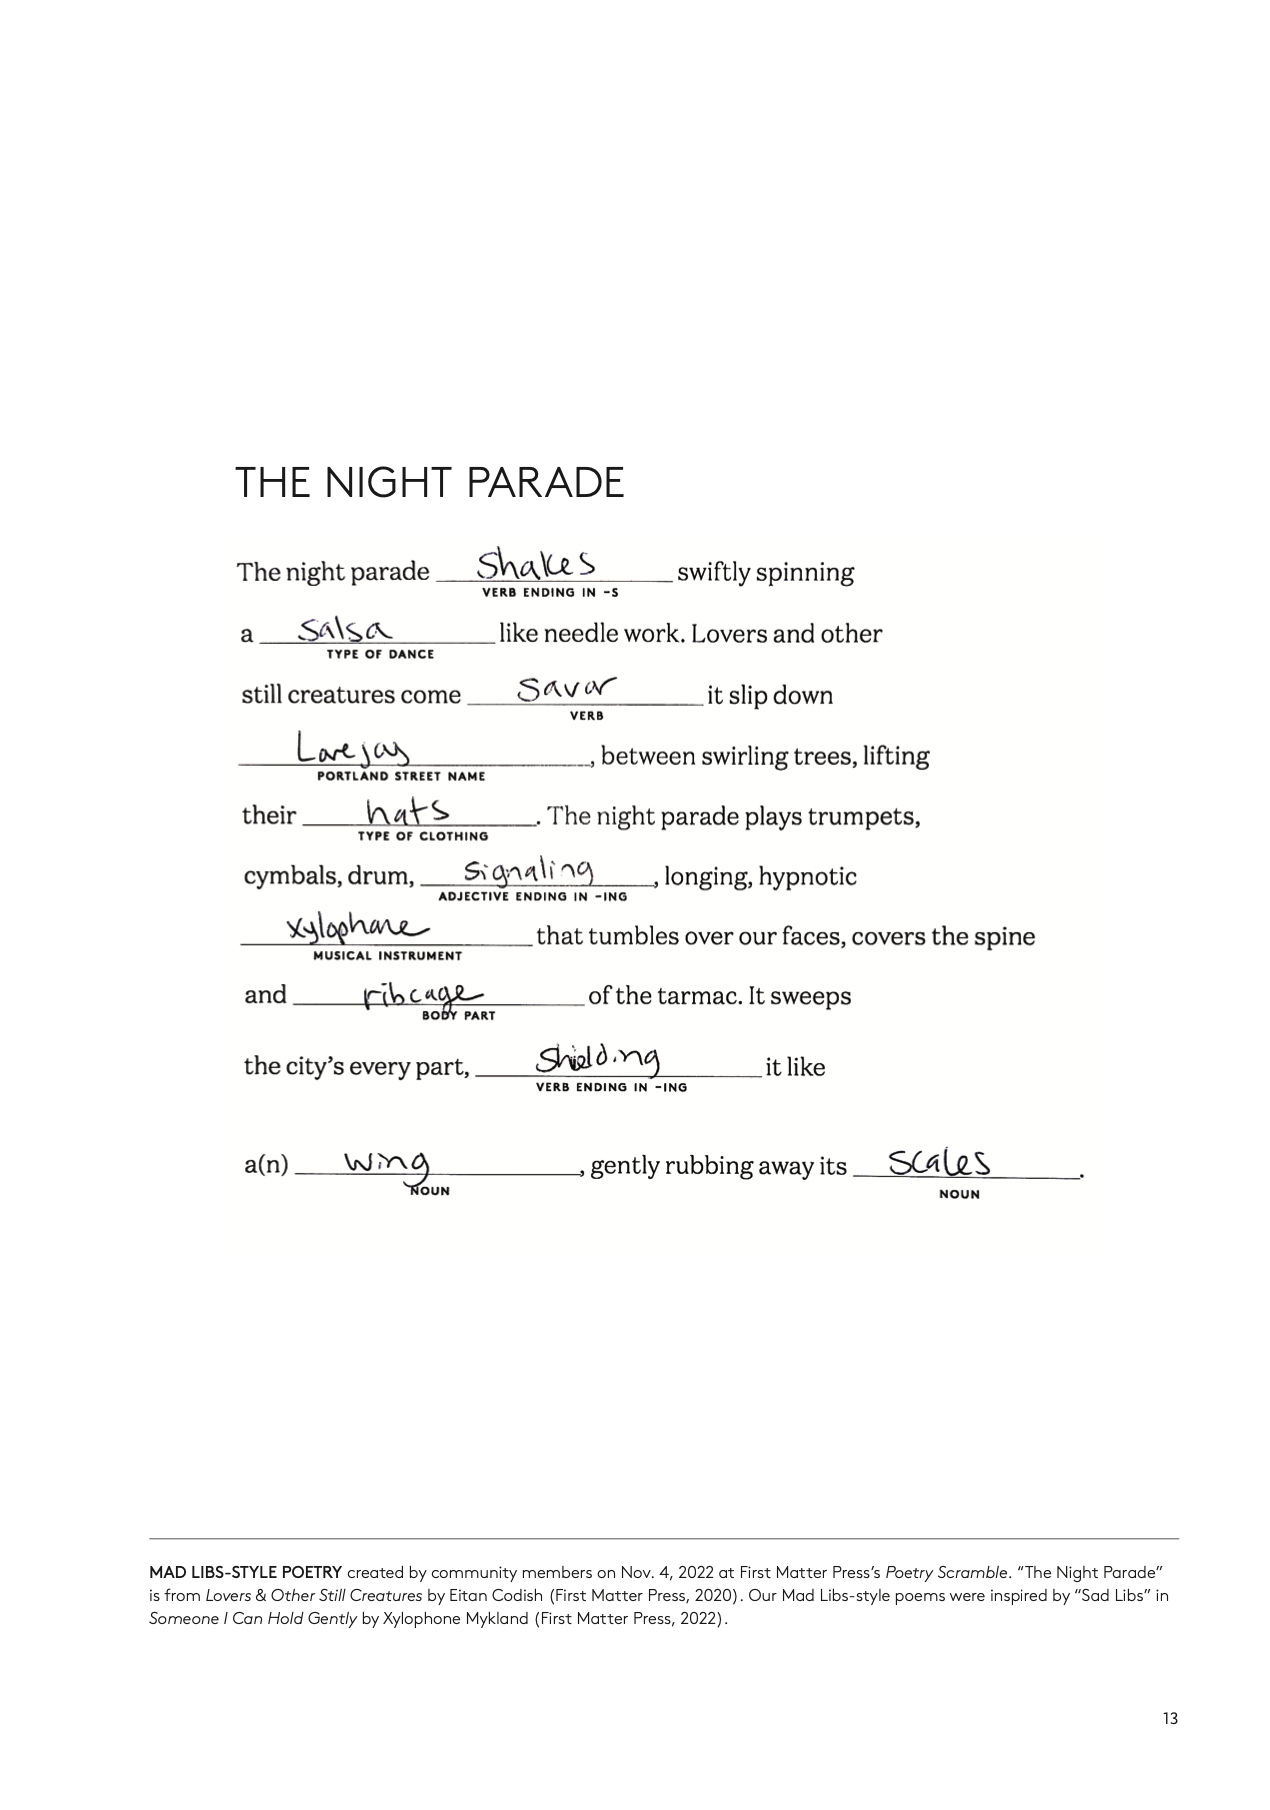 THE NIGHT PARADE
The night parade Shakes swiftly spinning
VERB ENDING IN -S
a Salsa like needle work. Lovers and other
TYPE OF DANCE
still creatures come Savor it slip down
VERB
Lovejoy, between swirling trees, lifting
PORTLAND STREET NAME
their hats. The night parade plays trumpets,
TYPE OF CLOTHING
cymbals, drum, Signaling, longing, hypnotic
ADJECTIVE ENDING IN -ING
xylophone that tumbles over our faces, covers the spine
MUSICAL INSTRUMENT
and ribcage of the tarmac. It sweeps
BODY PART
the city's every part, Shielding it like
VERB ENDING IN -ING
a(n) wing, gently rubbing away its Scales.
NOUN NOUN
MAD LIBS-STYLE POETRY created by community members on Nov. 4, 2022 at First Matter Press's Poetry Scramble. “The Night Parade”
is from Lovers & Other Still Creatures by Eitan Codish (First Matter Press, 2020). Our Mad Libs-style poems were inspired by “Sad Libs” in
Someone I Can Hold Gently by Xylophone Mykland (First Matter Press, 2022).
13